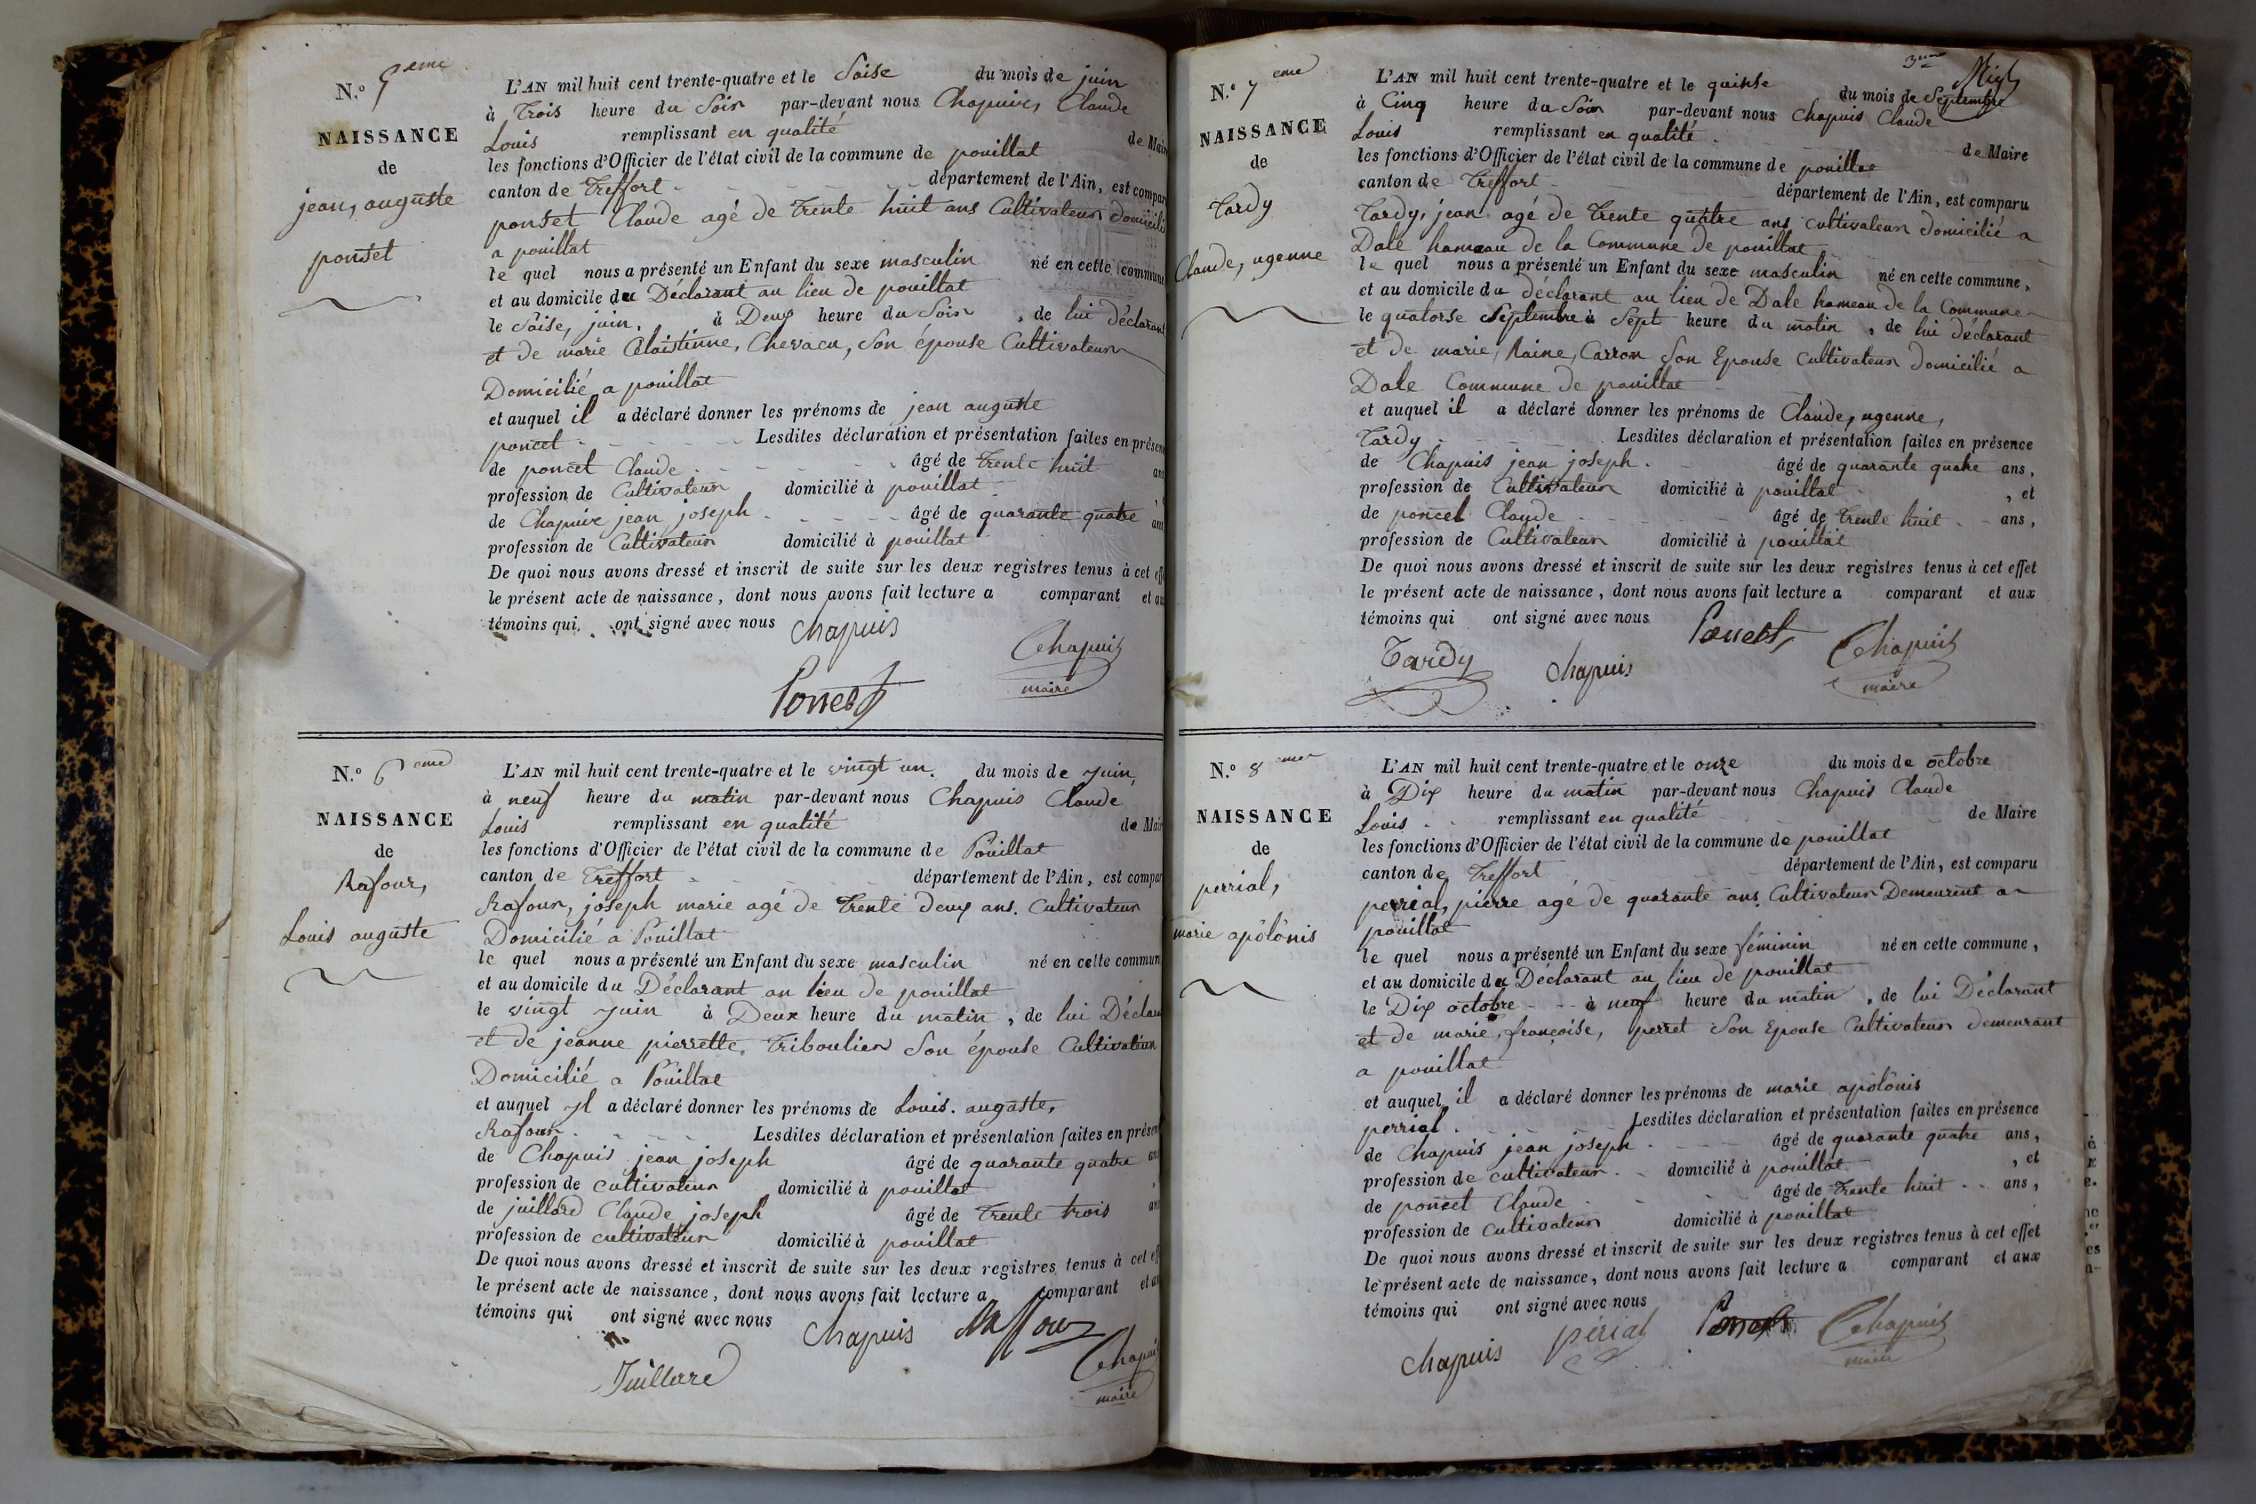 N.º 5eme
NAISSANCE
de
jean, auguste
ponset
L'AN mil huit cent trente-quatre et le Saise du mois de juin
à Trois heure du Soir par-devant nous Chapuis, Claude
Louis remplissant en qualité de Maire
les fonctions d'Officier de l'état civil de la commune de pouillat
canton de Treffort département de l'Ain, est compar
ponset Claude agé de Trente huit ans Cultivateur domicilié
a pouillat
le quel nous a présenté un Enfant du sexe masculin né en cette commune
et au domicile du Déclarant au lieu de pouillat
le Saise, juin, à Deux heure du Soir, de lui Déclarant
et de marie Chevacu, Son épouse Cultivateur
Domicilié a pouillat
et auquel il a déclaré donner les prénoms de jean auguste
poncet Lesdites déclaration et présentation faites en présen
de poncet Claude âgé de Trente huit ans
profession de Cultivateur domicilié à pouillat
de Chapuis jean joseph âgé de quarante quatre ans
profession de Cultivateur domicilié à pouillat
De quoi nous avons dressé et inscrit de suite sur les deux registres tenus à cet eff
le présent acte de naissance, dont nous avons fait lecture a comparant et au
témoins qui ont signé avec nous chapuis
Chapuis
maire
Poncet
N.º 6eme
NAISSANCE
de
Rafour,
Louis auguste
L'AN mil huit cent trente-quatre et le vingt un. du mois de juin,
à neuf heure du matin par-devant nous Chapuis Claude
Louis remplissant en qualité de Mair
les fonctions d'Officier de l'état civil de la commune de Pouillat
canton de Treffort département de l'Ain, est compar
Rafour, joseph marie agé de Trente deux ans. Cultivateur
Domicilié a Pouillat
le quel nous a présenté un Enfant du sexe masculin né en cette commun
et au domicile du Déclarant au lieu de pouillat
le vingt juin à Deux heure du matin, de lui Déclara
et de jeanne pierrette, Triboulier Son épouse Cultivateur
Domicilié a Pouillat
et auquel yl a déclaré donner les prénoms de Louis. auguste,
Rafour. Lesdites déclaration et présentation faites en présen
de Chapuis jean joseph âgé de quarante quatre ans
profession de cultivateur domicilié à pouillat
de juillard Claude joseph âgé de Trente trois ans
profession de cultivateur domicilié à pouillat
De quoi nous avons dressé et inscrit de suite sur les deux registres tenus à cet eff
le présent acte de naissance, dont nous avons fait lecture a comparant et au
témoins qui ont signé avec nous chapuis Raffour
Chapuis
maire
Juillard
3eme
N.º 7eme
NAISSANCE
de
Tardy
Claude, ugenne
L'AN mil huit cent trente-quatre et le quinse du mois de Septembre
à Cinq heure du Soir par-devant nous Chapuis Claude
Louis remplissant en qualité de Maire
les fonctions d'Officier de l'état civil de la commune de pouillat
canton de Treffort département de l'Ain, est comparu
Tardy, jean agé de Trente quatre ans cultivateur domicilié a
Dale hameau de la Commune de pouillat
le quel nous a présenté un Enfant du sexe masculin né en cette commune,
et au domicile du déclarant au lieu de Dale hameau de la Commune
le quatorse Septembre à Sept heure du matin, de lui déclarant
et de marie, Raine, Carron Son Epouse Cultivateur domicilié a
Dale Commune de pouillat
et auquel il a déclaré donner les prénoms de Claude, ugenne,
Tardy Lesdites déclaration et présentation faites en présence
de Chapuis jean joseph. âgé de quarante quatre ans,
profession de Cultivateur domicilié à pouillat, et
de poncet Claude âgé de Trente huit ans,
profession de Cultivateur domicilié à pouillat
De quoi nous avons dressé et inscrit de suite sur les deux registres tenus à cet effet
le présent acte de naissance, dont nous avons fait lecture a comparant et aux
témoins qui ont signé avec nous Poncet
Tardy chapuis Chapuis
maire
N.º 8eme
NAISSANCE
de
perrial,
marie apôlônis
L'AN mil huit cent trente-quatre et le onze du mois de octobre
à Dix heure du matin par-devant nous Chapuis Claude
Louis remplissant en qualité de Maire
les fonctions d'Officier de l'état civil de la commune de pouillat
canton de Treffort département de l'Ain, est comparu
perrial, pierre agé de quarante ans Cultivateur Demeurent a
pouillat
le quel nous a présenté un Enfant du sexe féminin né en cette commune,
et au domicile du Déclarant au lieu de pouillat
le Dix octobre à neuf heure du matin, de lui Déclarant
et de marie, françoise, perret Son Epouse Cultivateur demeurant
a pouillat
et auquel il a déclaré donner les prénoms de marie apôlônis
perrial. Lesdites déclaration et présentation faites en présence
de Chapuis jean joseph. âgé de quarante quatre ans,
profession de cultivateur domicilié à pouillat, et
de poncet Claude âgé de Trente huit ans,
profession de cultivateur domicilié à pouillat
De quoi nous avons dressé et inscrit de suite sur les deux registres tenus à cet effet
le présent acte de naissance, dont nous avons fait lecture a comparant et aux
témoins qui ont signé avec nous
chapuis périal Poncet Chapuis
maire